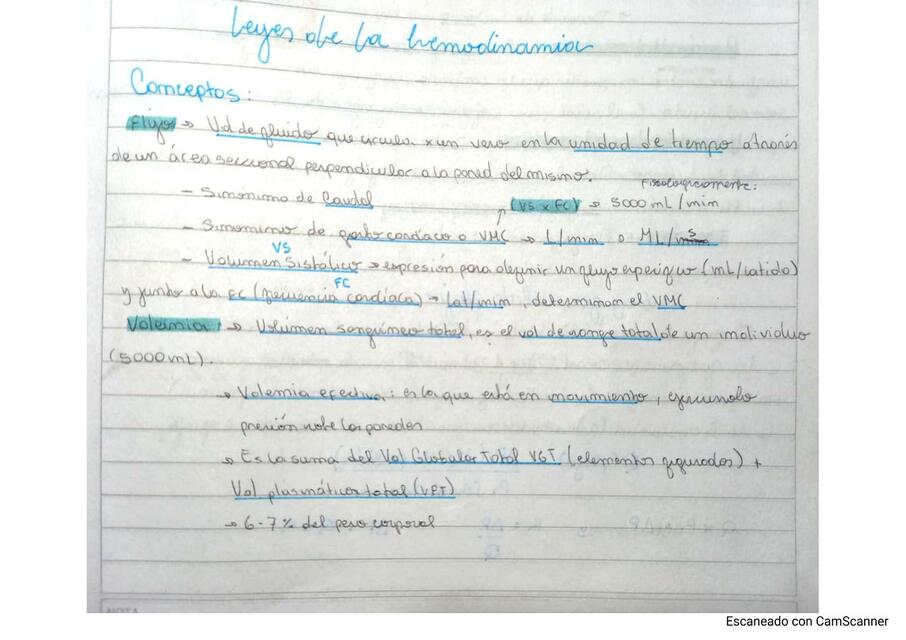 Leyes de la hemodinamia
Conceptos:
Flujo → Vol de fluido que circula x un vaso en la unidad de tiempo através
de un área seccional perpendicular a la pared del mismo.
Fisiologicamente:
- Sinonimo de Caudal (VS x FC) → 5000 mL/min
- Sinonimo de gasto cardíaco o VMC → L/min o ML/s
VS
- Volumen Sistólico → expresión para definir un flujo (mL/latido)
FC
y junto a la FC (frecuencia cardíaca) → lat/min, determinan el VMC
Volemia → Volúmen sanguíneo total, es el vol de sangre total de un individuo
(5000 mL).
→ Volemia efectiva: es la que está en movimiento, ejerciendo
presión sobre las paredes
→ Es la suma del Vol Globular Total VGT (elementos figurados) +
Vol plasmático total (VPT)
→ 6-7% del peso corporal
NOTA
Escaneado con CamScanner